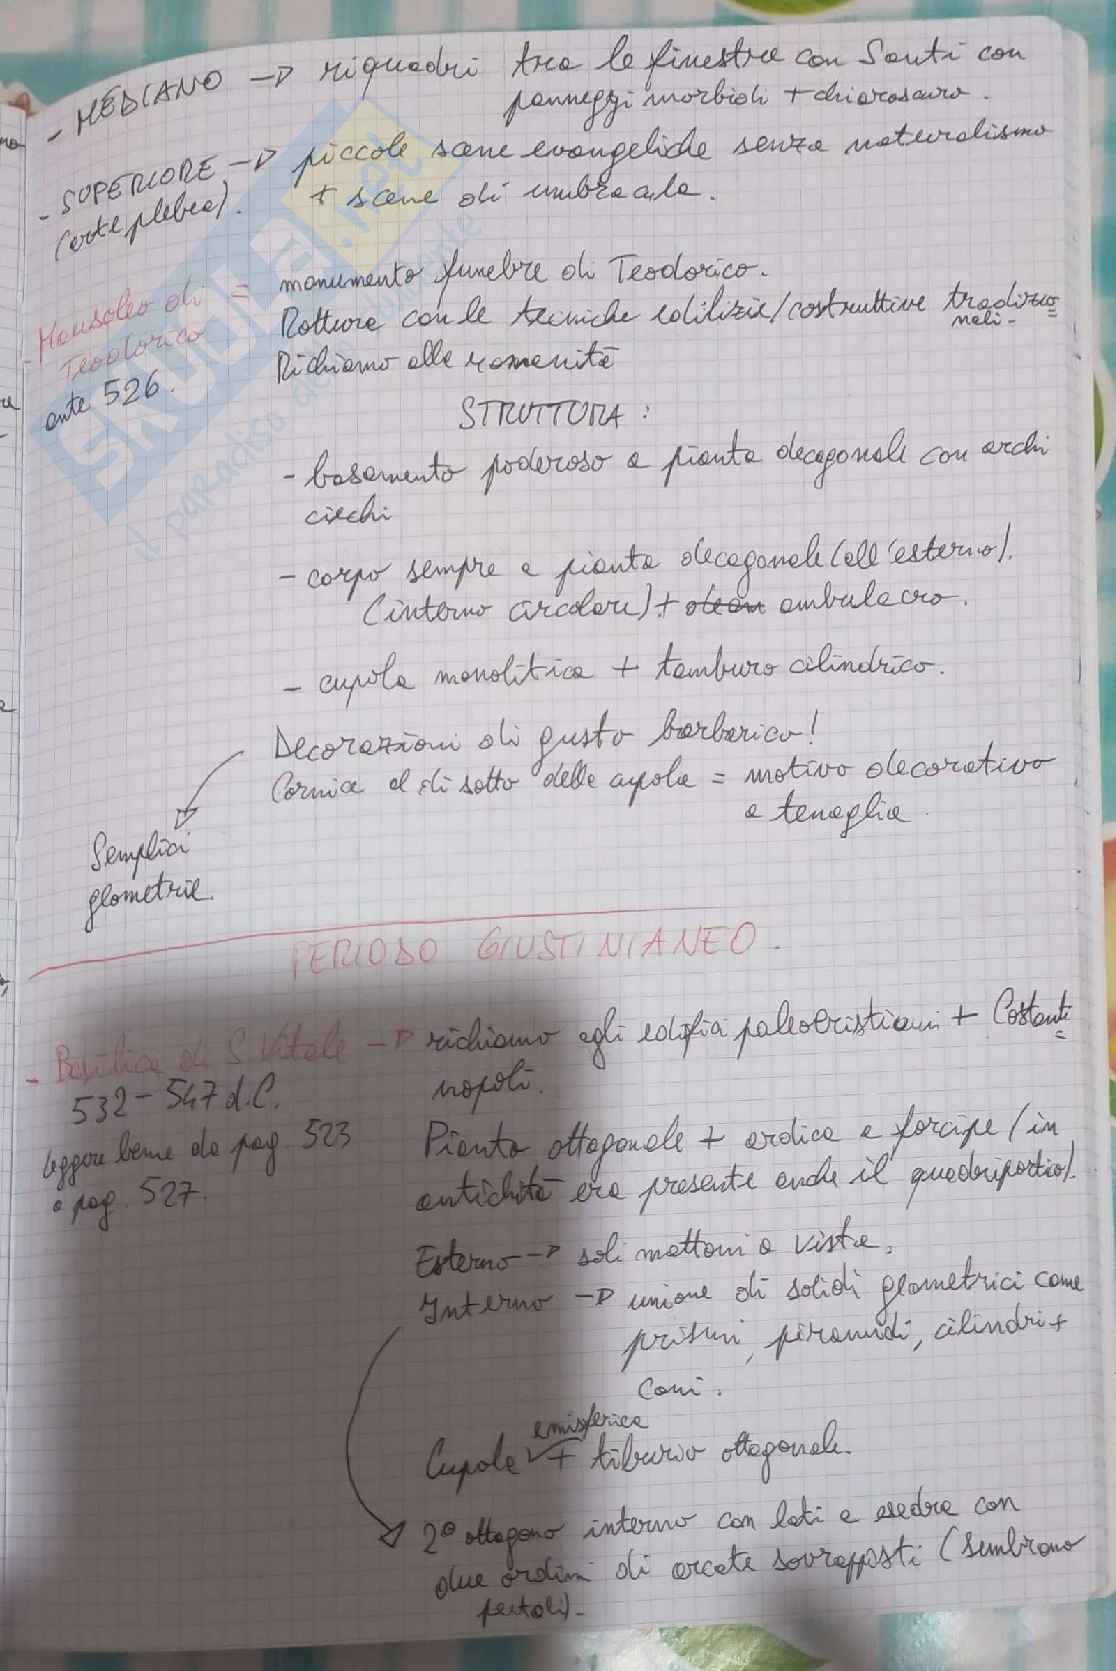 - MEDIANO → riquadri tra le finestre con Santi con
panneggi morbidi + chiaroscuro.
- SUPERIORE → piccole scene evangeliche senza naturalismo
(arte plebea). + scene di
- Mausoleo di Teodorico = monumento funebre di Teodorico.
ante 526. Rottura con le tecniche edilizie/costruttive tradizio=
nali-
Richiamo alla romanità
STRUTTURA:
- basamento poderoso a pianta decagonale con archi
ciechi
- corpo sempre a pianta decagonale (all'esterno).
(interno circolare) + ambulacro.
- cupola monolitica + tamburo cilindrico.
Decorazioni di gusto barbarico!
Cornice al di sotto della cupola = motivo decorativo
a tenaglia.
Semplici
geometrie.
PERIODO GIUSTINIANEO.
- Basilica di S. Vitale → richiamo agli edifici paleocristiani + Costanti=
532-547 d.C. nopoli.
leggere bene da pag. 523
a pag. 527.
Pianta ottagonale + ardica a forcipe (in
antichità era presente anche il quadriportico).
Esterno → soli mattoni a vista.
Interno → unione di solidi geometrici come
prismi, piramidi, cilindri +
coni.
Cupola emisferica + tiburio ottagonale.
2° ottagono interno con lati a esedra con
due ordini di arcate sovrapposti (sembrano
petali)-
SKUOLA.net
il paradiso dello studente